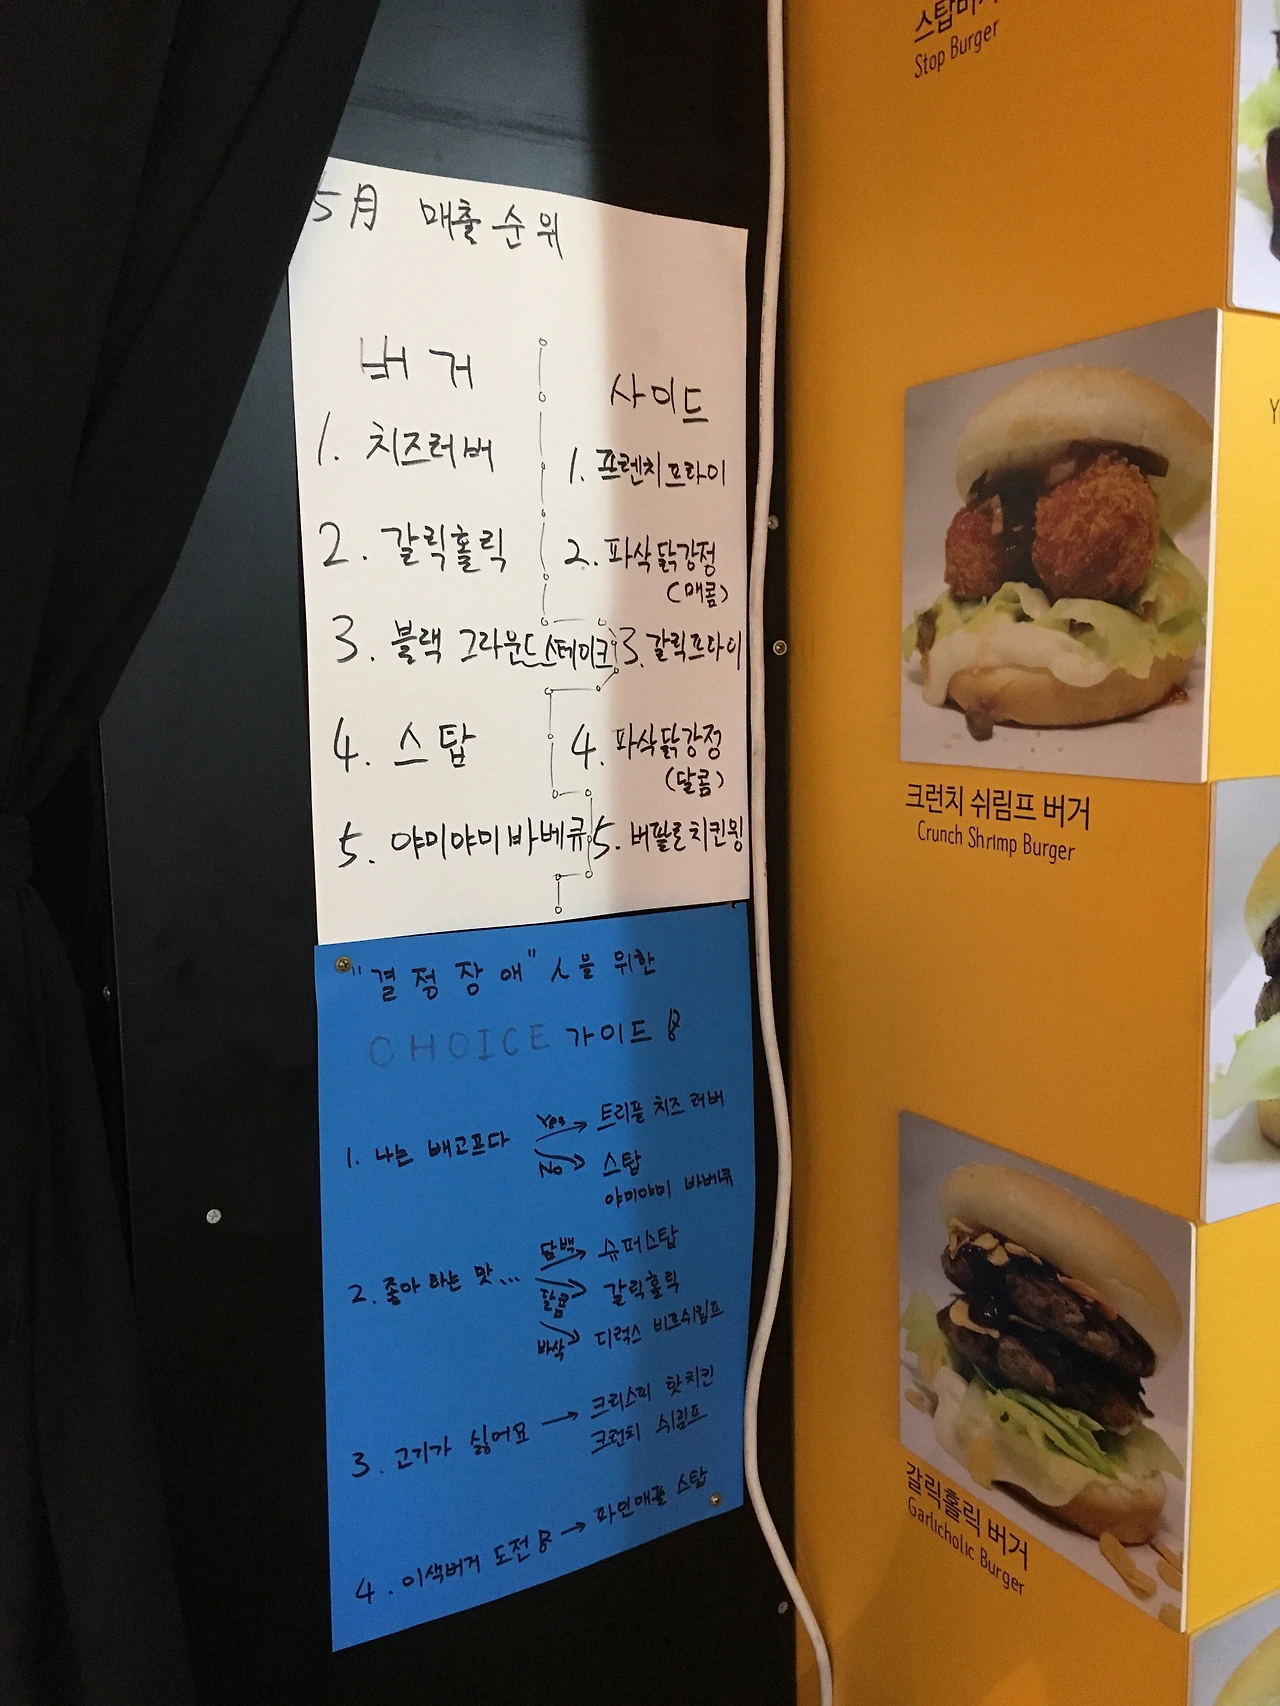 5月 매출순위
버거
1. 치즈러버
2. 갈릭홀릭
3. 블랙 그라운드스테이크
4. 스탑
5. 야미야미바베큐
사이드
1. 프렌치프라이
2. 파삭닭강정
(매콤)
3. 갈릭프라이
4. 파삭닭강정
(달콤)
5. 버팔로치킨윙
"결정장애"人을 위한
CHOICE 가이드
1. 나는 배고프다
Yes → 트리플 치즈러버
No → 스탑
야미야미 바베큐
2. 좋아하는 맛...
담백 → 슈퍼스탑
달콤 → 갈릭홀릭
바삭 → 디럭스 비프쉬림프
3. 고기가 싫어요 → 크리스피 핫치킨
크런치 쉬림프
4. 이색버거 도전 → 파인애플 스탑
스탑버거
Stop Burger
크런치 쉬림프 버거
Crunch Shrimp Burger
갈릭홀릭 버거
Garlicholic Burger